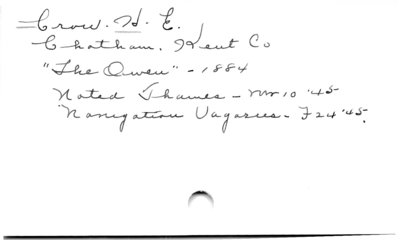 Crow. H. E.
Chatham. Kent Co
"The Owen" - 1884
Noted Thames - Mr 10 '45
Navigation Vagaries - F 24 '45.